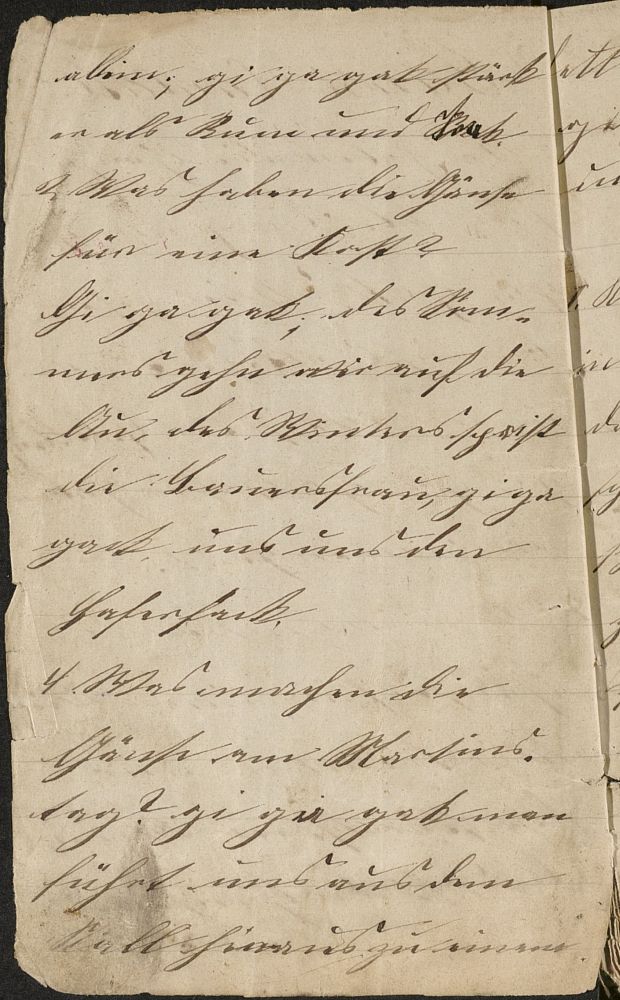 allein; gi ga gak stärk
er als Rum und Arak.
3 Was haben die Gänse
für eine Kost?
Gi ga gak; des Som-
mers gehn wir auf die
Au, des Winters speist
die Bauersfrau, gi ga
gack uns aus den
Hafersack.
4 Was machen die
Gänse am Martins-
tag? gi ga gak man
führt uns aus dem
Stall hinaus zu einem